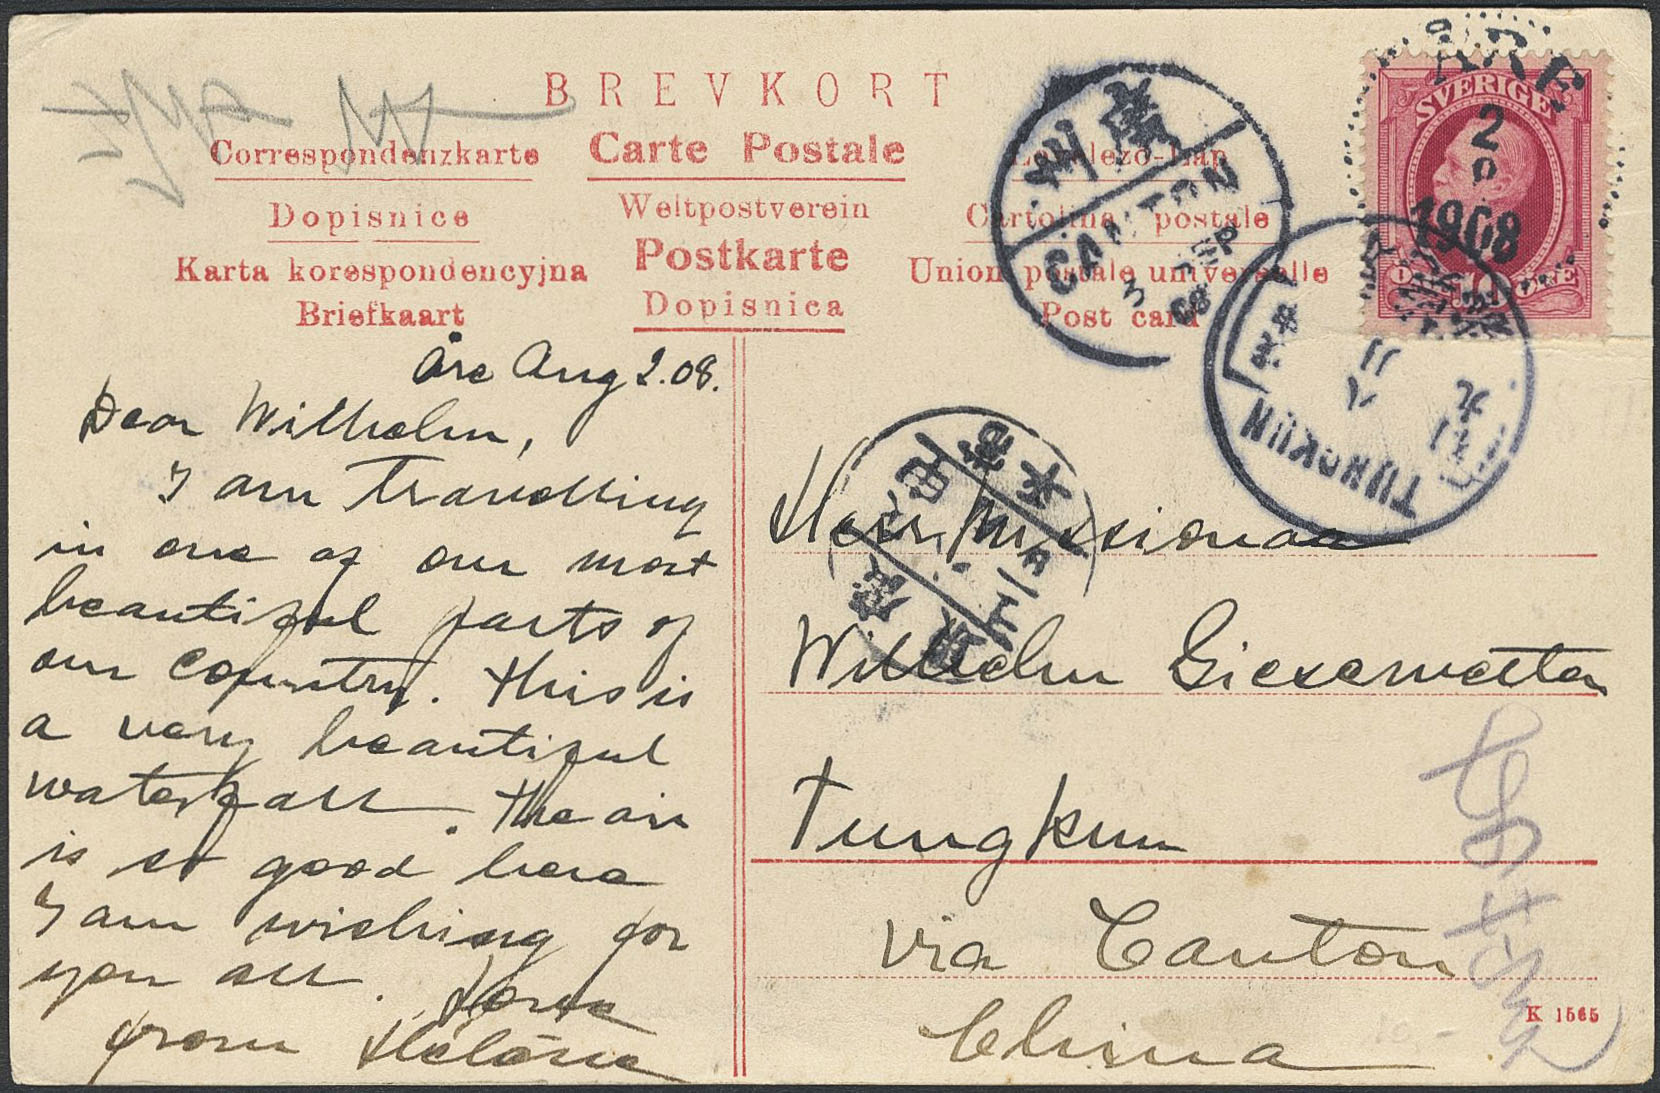 BREVKORT
Correspondenzkarte
Carte Postale
Levelezö-Lap
Dopisnice
Weltpostverein
Cartolina postale
Karta korespondencyjna
Postkarte
Union postale universelle
Briefkaart
Dopisnica
Post card
Åre Aug 2.08.
Dear Wilhelm,
I am travelling
in one of our most
beautiful parts of
our country. This is
a very beautiful
waterfall. The air
is so good here
I am wishing for
you all.
from Hélène
SVERIGE
10 ÖRE
ÅRE
2
1908
廣州
CANTON
SEP
08
TUNGKUN
Herr Missionar
Wilhelm
Tungkun
via Canton
China
K 1565